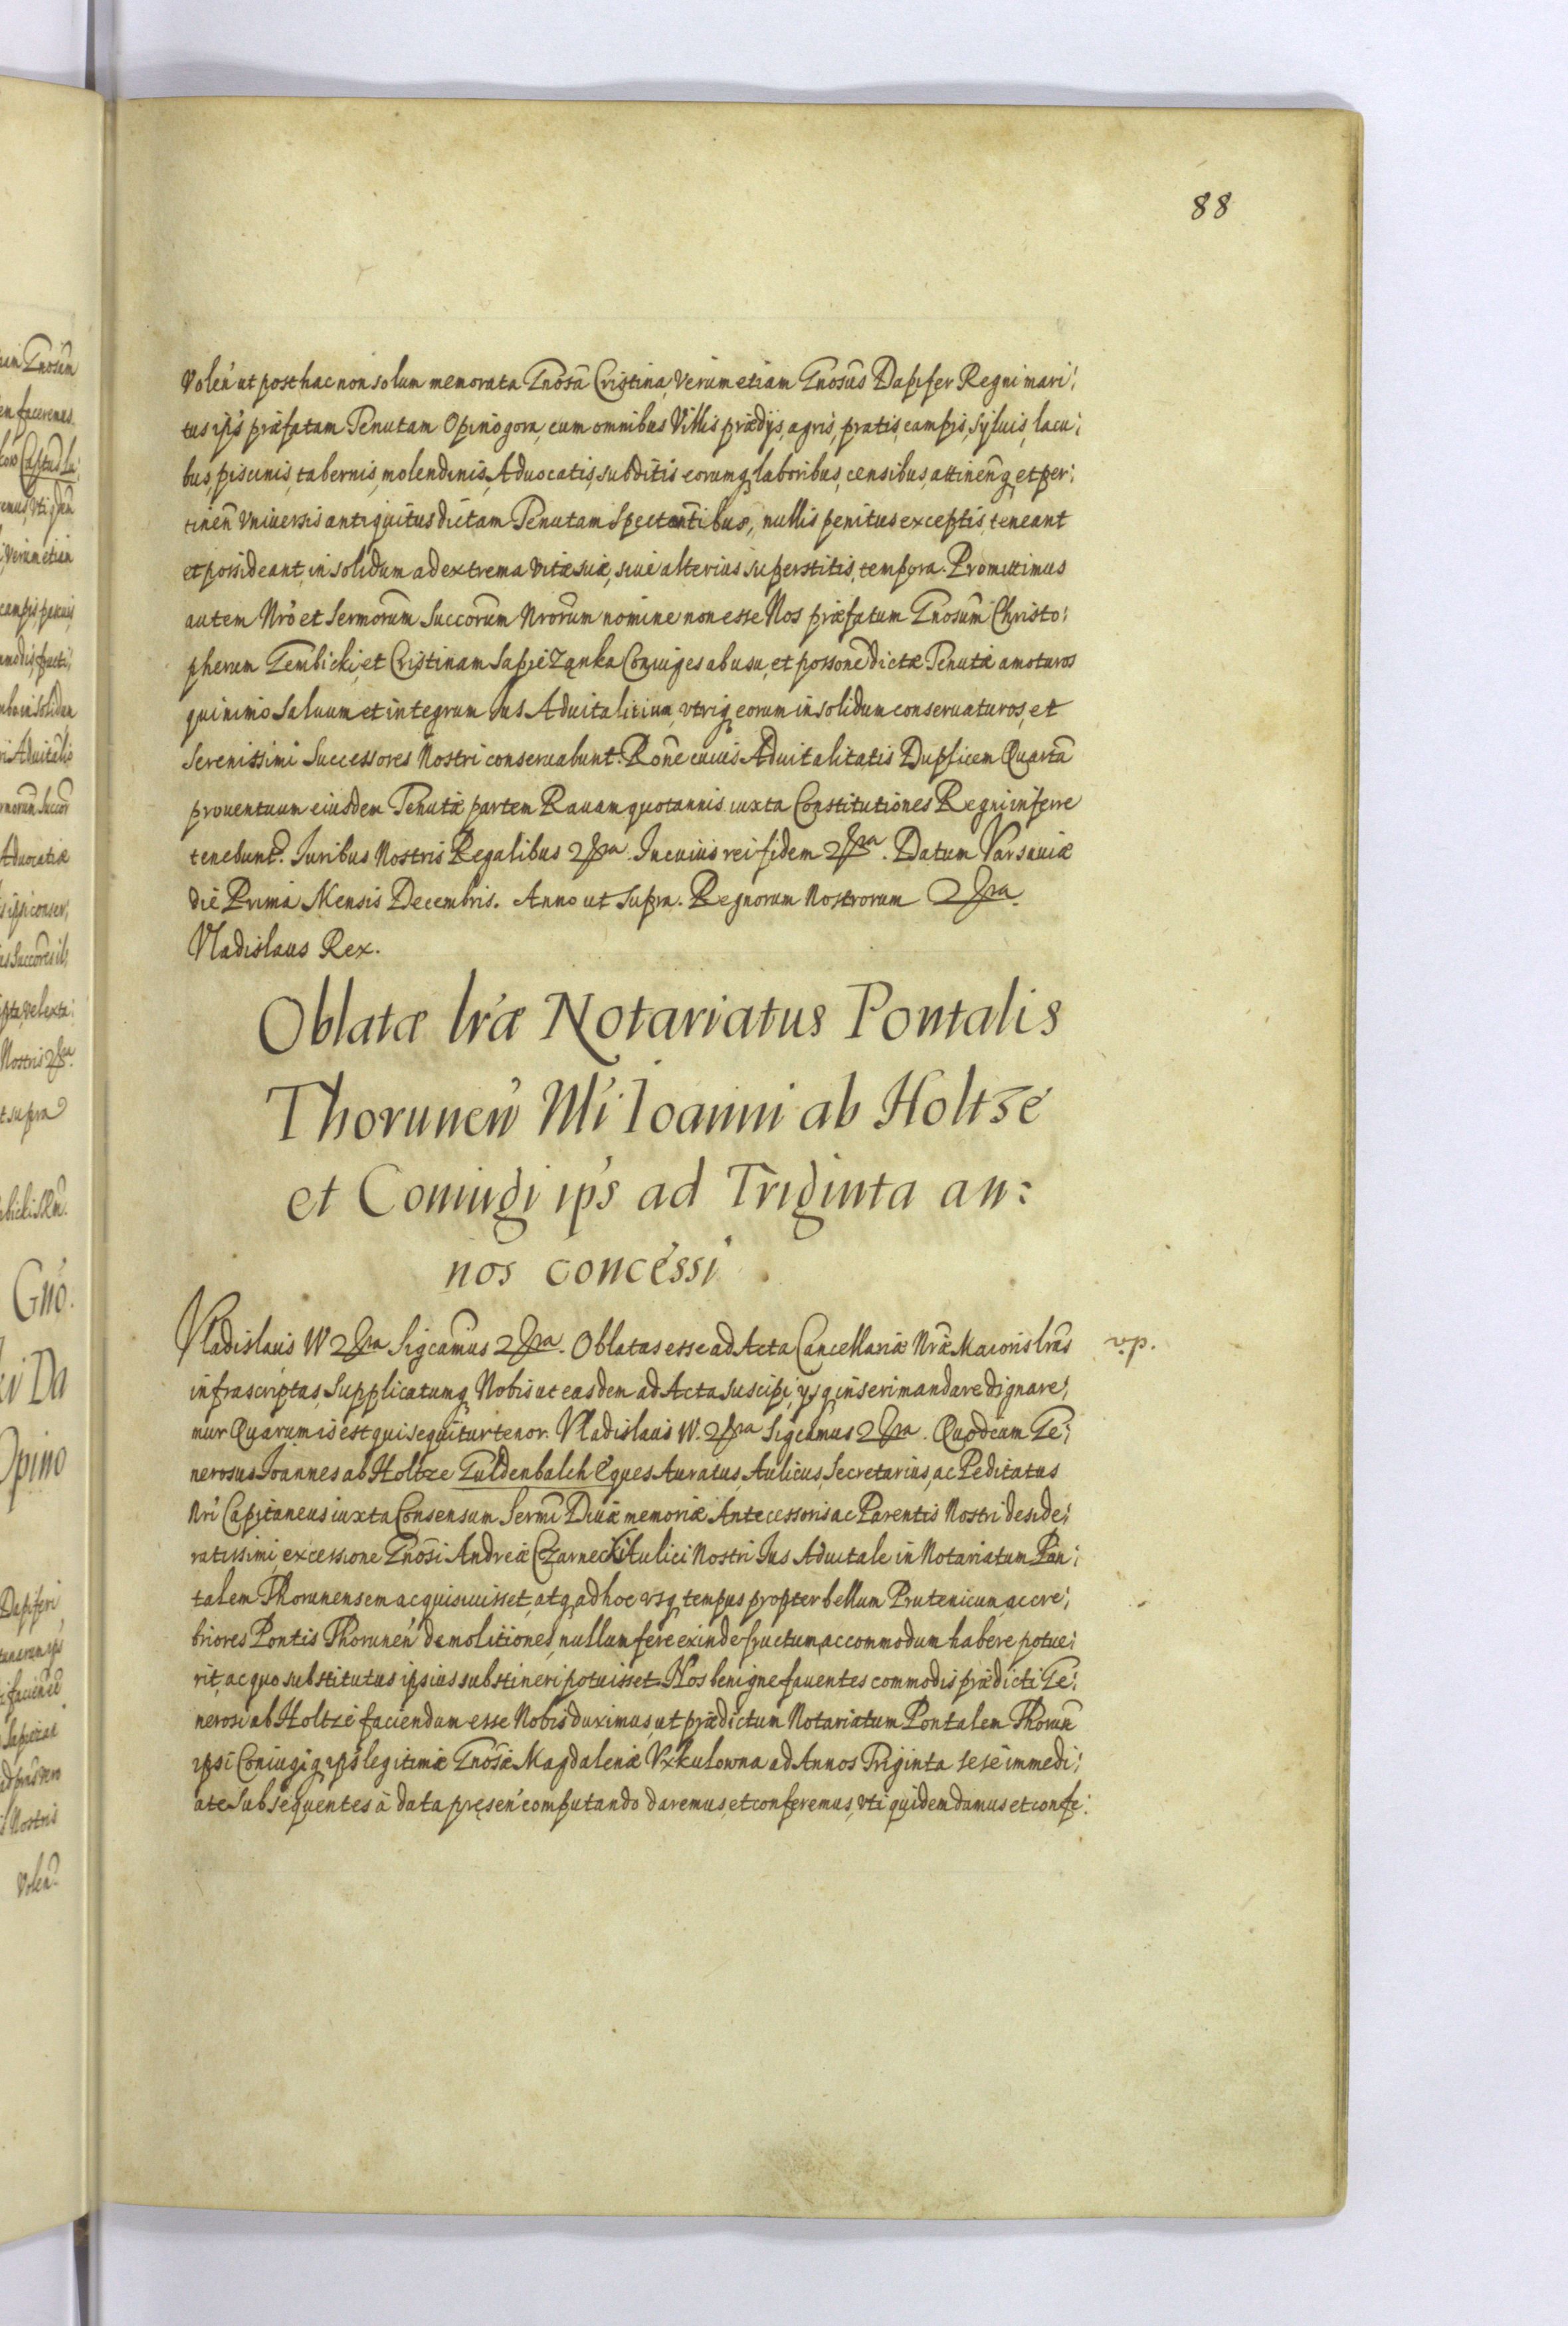 88
Volen̄ ut posthac non solum memorata Gnōsa Cristina, verum etiam Gnōsus Dapifer Regni mari:
tus ipīs præfatam Tenutam Opinogora, cum omnibus Villis prædijs, agris, pratis, campis, syluis, lacu:
bus, piscinis, tabernis, molendinis, Aduocatis, subditis eorumq, laboribus, censibus, attinen̄q, et per:
tinen̄ vniuersis antiquitus dictam Tenutam Spectantibus, nullis penitus exceptis, teneant
et possideant, in solidum ad extrema vitæ suæ, siue alterius superstitis, tempora. Promittimus
autem Nrō et Sermorūm Succorūm Nrorūm nomine non esse Nos præfatum Gnōsum Christo:
pherum Gembicki, et Cristinam Sapieżąnka Coniuges ab usu, et possonē dictæ Tenutæ amoturos
quinimo Saluum et integrum Ius Aduitalitiua, vtriq eorum in solidum conseruaturos, et
Serenissimi Successores Nostri conseruabunt. Ronē cuius Aduitalitatis Duplicem Quartā
prouentuum eiusdem Tenutæ partem Rauam quotannis iuxta Constitutiones Regni inferre
tenebunt̄. Iuribus Nostris Regalibus &ra. In cuius rei fidem &ra. Datum Varsauiæ
die Prima Mensis Decembris. Anno ut Supra. Regnorum Nostrorum &ra.
Vladislaus Rex.
Oblatæ lræ Notariatus Pontalis
Thorunen̄ Mī Ioanni ab Holtze
et Coniugi ip̄s ad Triginta an:
nos concessi
Vladislaus IV &ra Sigcāmus &ra. Oblatas esse ad Acta Cancellariæ Nrǣ Maioris lrās v.p.
infrascriptas, Supplicatumq Nobis ut easdem ad Acta suscipi, ysq inseri mandare dignare:
mur Quarum is est qui sequitur tenor. Vladislaus IV. &ra Sigcāmus &ra. Quod cum Ge:
nerosus Ioannes ab Holtze Guldenbalch Eques Auratus, Aulicus, Secretarius, ac Peditatus
Nrī Capitaneus iuxta Consensum Sermī Diuæ memoriæ Antecessoris ac Parentis Nostri deside:
ratissimi ex cessione Gnōsi Andreæ Czarnecki Aulici Nostri Ius Aduitale in Notariatum Pon:
talem Thorunensem acquisiuisset, atq ad hoc vsq tempus propter bellum Prutenicum, ac cre:
briores Pontis Thorunen̄ demolitiones, nullum fere exinde fructum, ac commodum habere potue:
rit, ac quo substitutus ipsius substineri potuisset. Nos benigne fauentes commodis prædicti Ge:
nerosi ab Holtze faciendum esse Nobis duximus ut prædictum Notariatum Pontalem Thorun̄
ipsi Coniugiq ipīs legitimæ Gnōsæ Magdalenæ Vxkulowna ad Annos Triginta sese immedi:
ate Subsequentes à data præsen̄ computando daremus, et conferemus, vti quidem damus et confe: